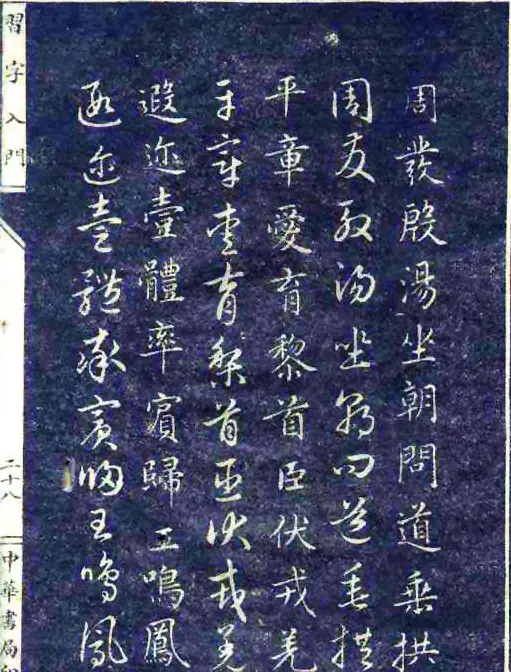 周發殷湯坐朝問道垂拱
周發殷湯坐朝問道垂拱
平章愛育黎首臣伏戎羌
平章愛育黎首臣伏戎羌
遐迩壹體率賓歸王鳴鳳
遐迩壹體率賓歸王鳴鳳
習字入門
二十八
中華書局